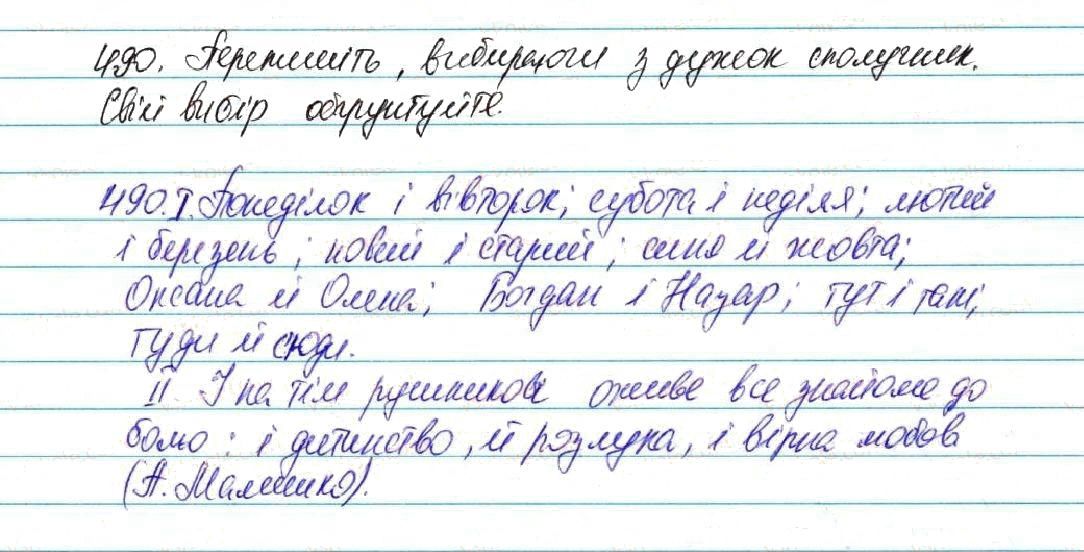 490. Перепишіть, вибираючи з дужок сполучник.
Свій вибір обґрунтуйте.
490. I. Понеділок і вівторок; субота і неділя; лютий
і березень; новий і старий; синя й жовта;
Оксана й Олена; Богдан і Назар; тут і там;
туди й сюди.
II. І на тім рушникові оживе все знайоме до
болю: і дитинство, й розлука, і вірна любов
(А. Малишко).